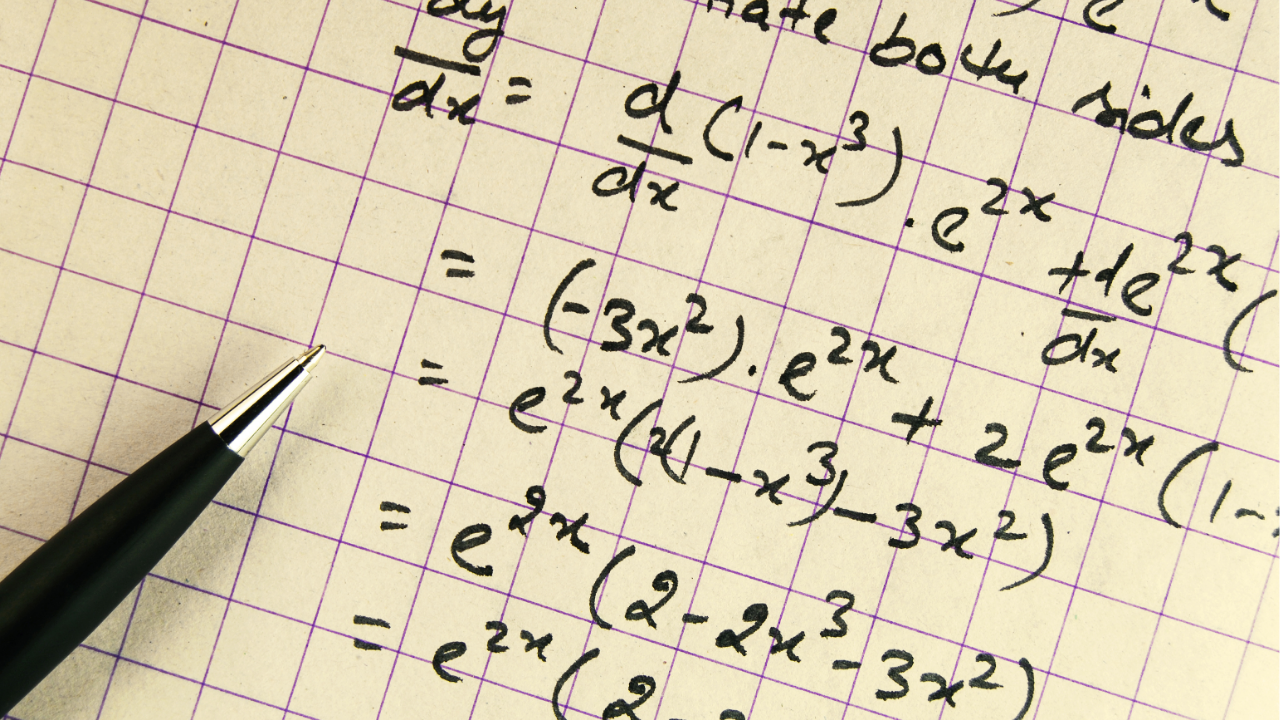 ) e
both sides
dy/dx = d/dx (1-x³) . e²ˣ + de²ˣ/dx (
= (-3x²) . e²ˣ + 2e²ˣ (1-
= e²ˣ(2(1-x³)-3x²)
= e²ˣ(2-2x³-3x²)
= e²ˣ(2-